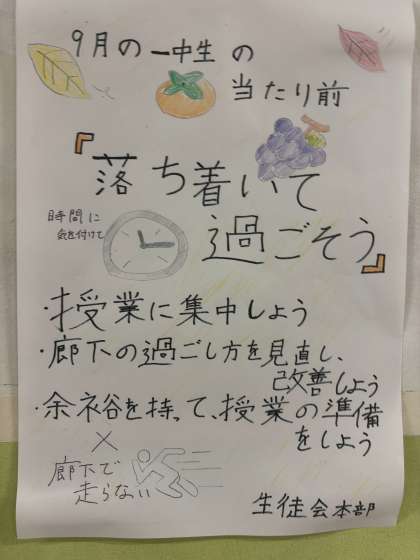 9月の一中生の
当たり前
『落ち着いて
時間に
気を付けて
過ごそう』
・授業に集中しよう
・廊下の過ごし方を見直し、
改善しよう
・余裕を持って、授業の準備
をしよう
×
廊下で
走らない
生徒会本部